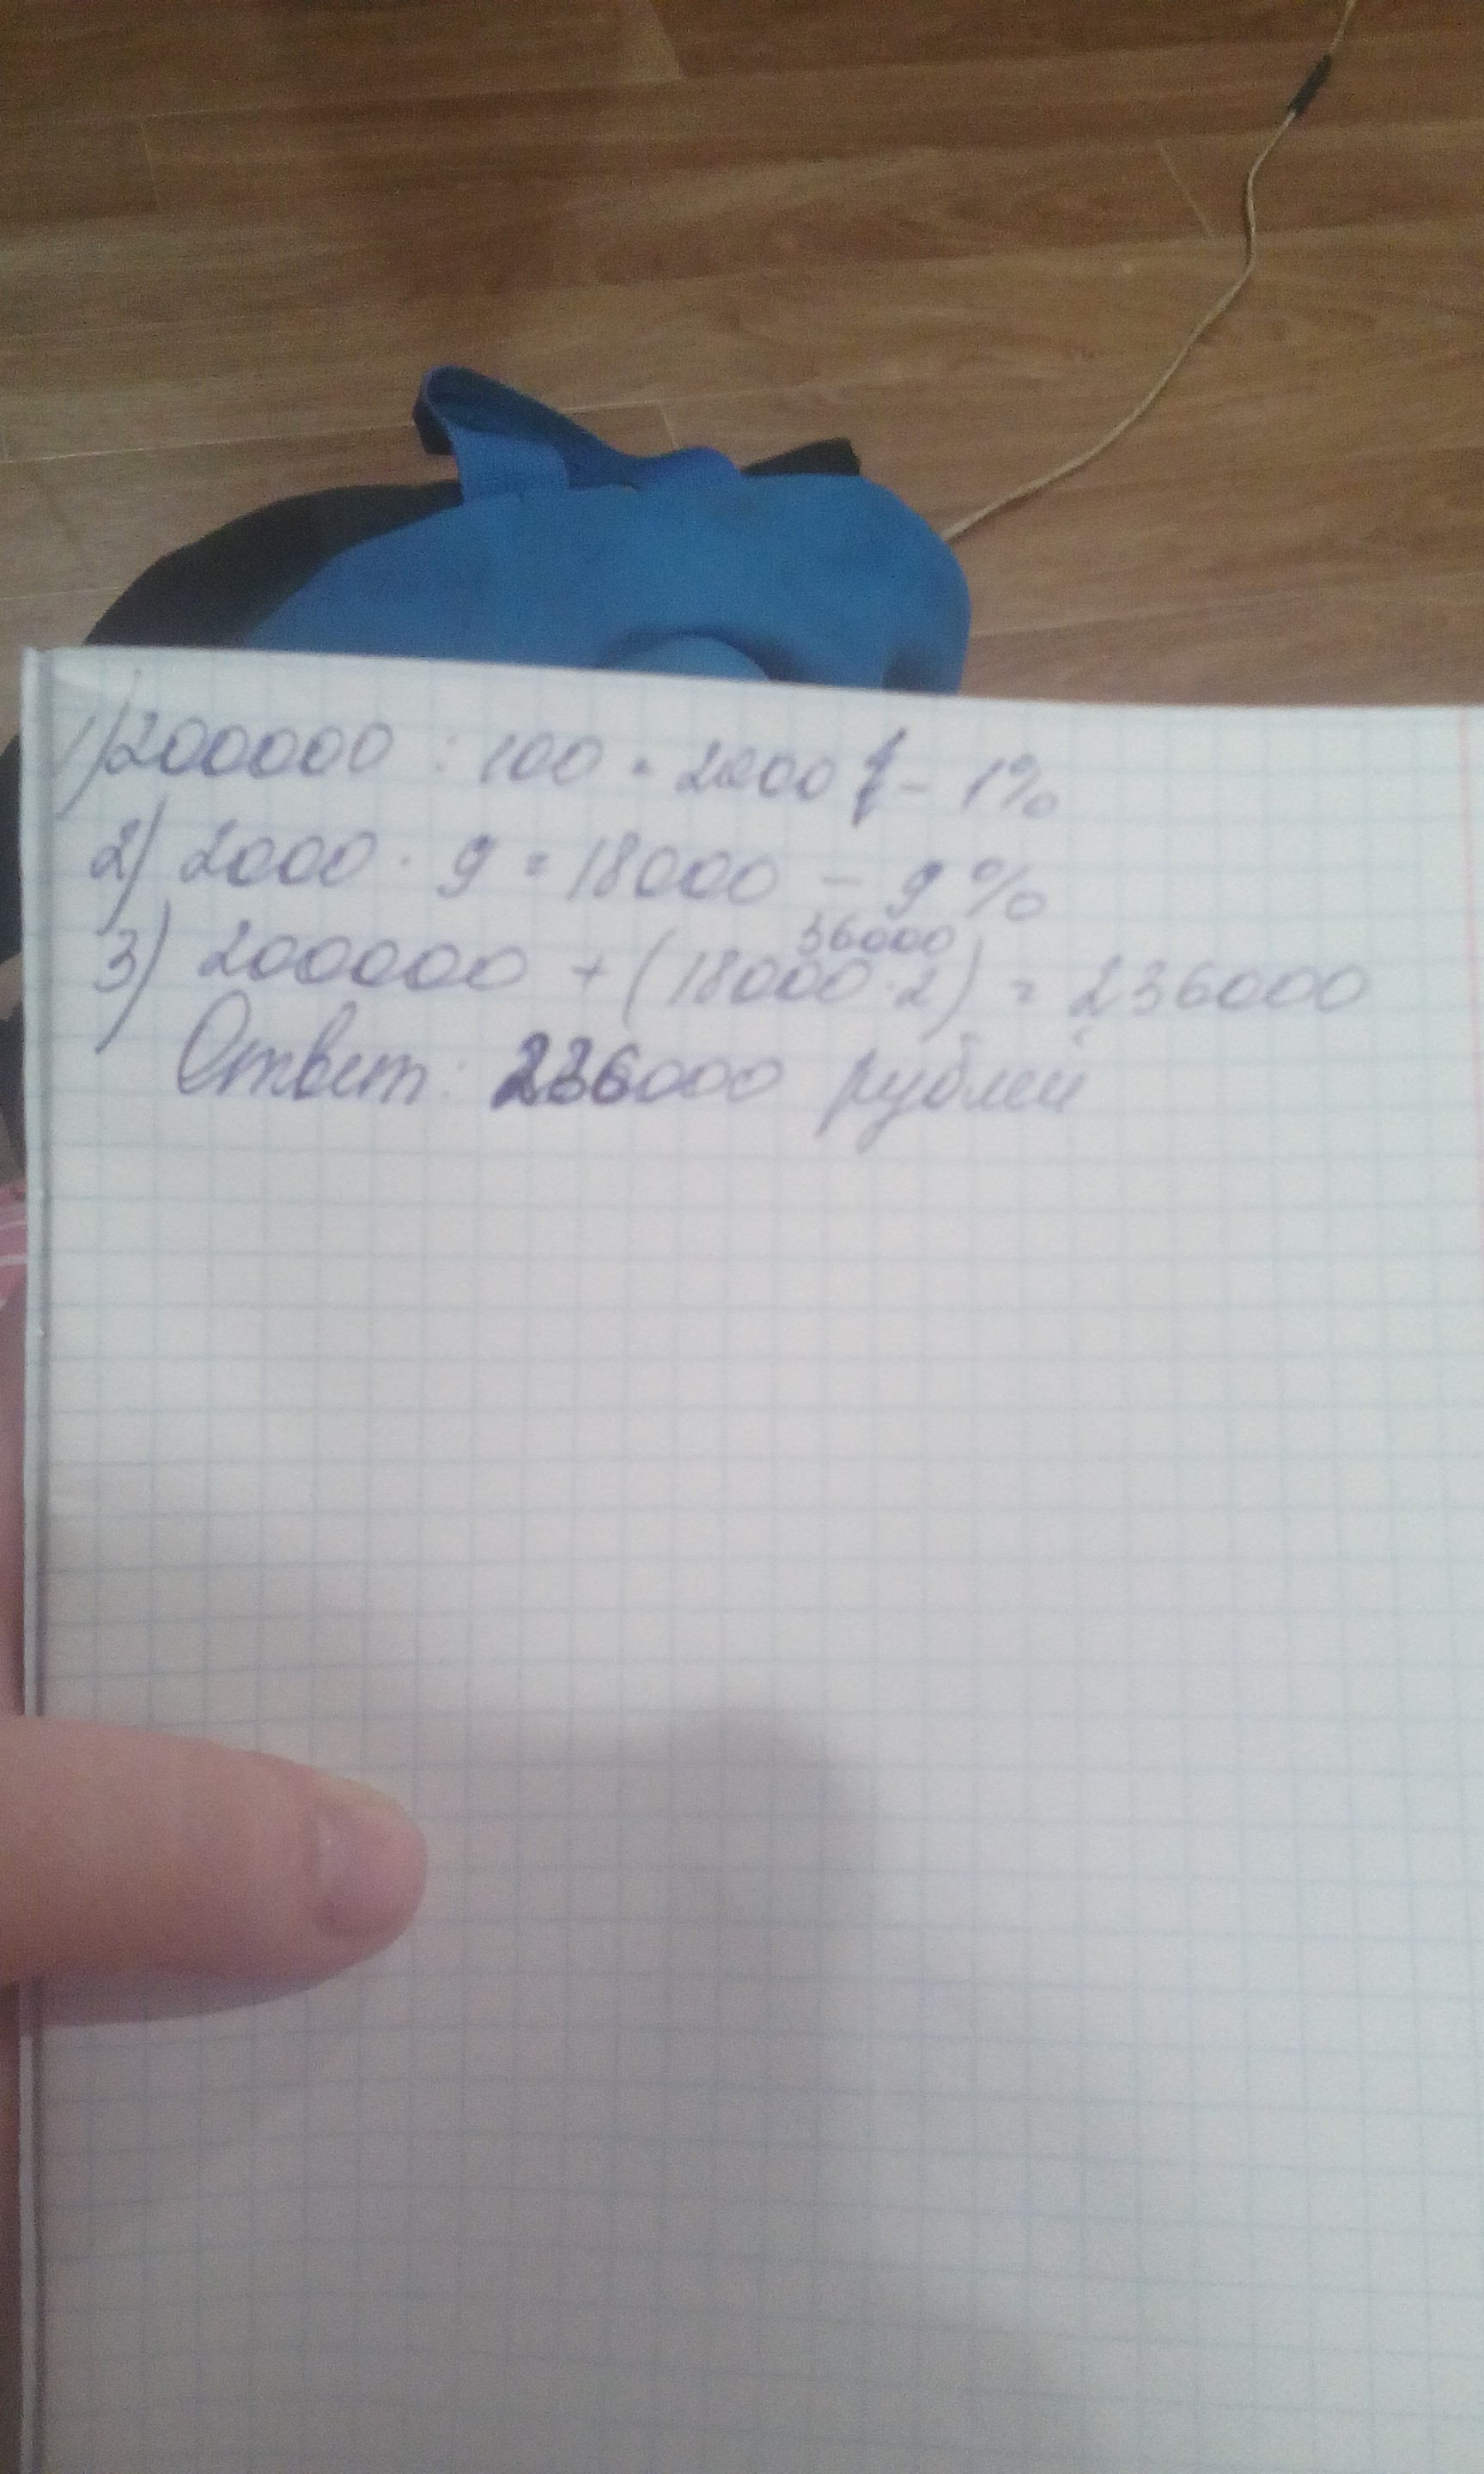 1) 200000 : 100 = 2000 - 1%
2) 2000 · 9 = 18000 - 9%
36000
3) 200000 + (18000 · 2) = 236000
Ответ: 236000 рублей